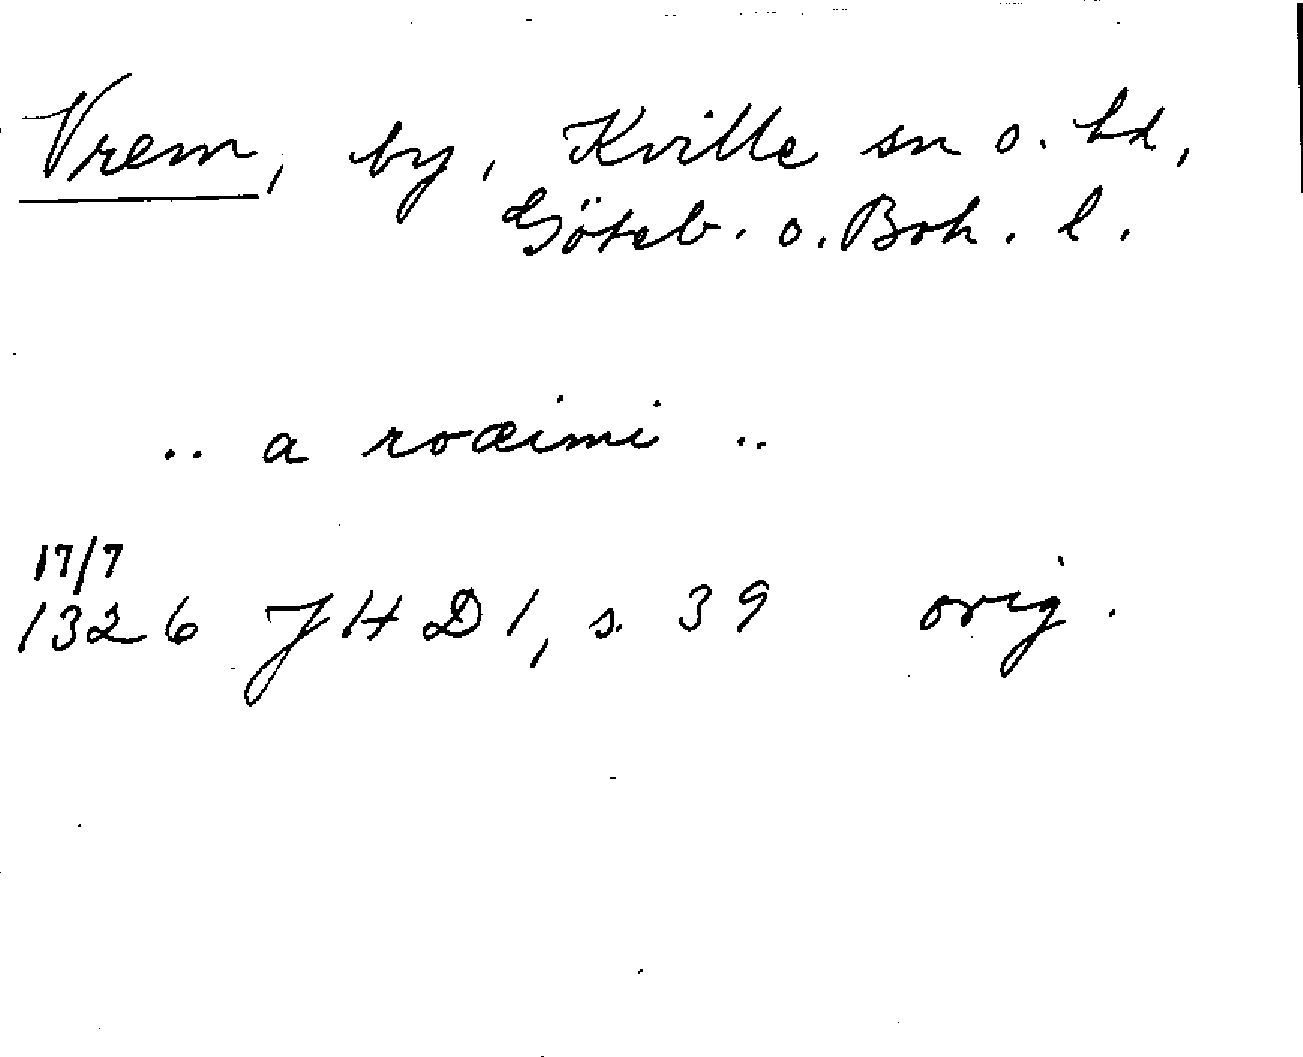 Vrem, by, Kville sn o. hd,
Göteb. o. Boh. l.
.. a roæimi ..
17/7
1326 JHD 1, s. 39 orig.